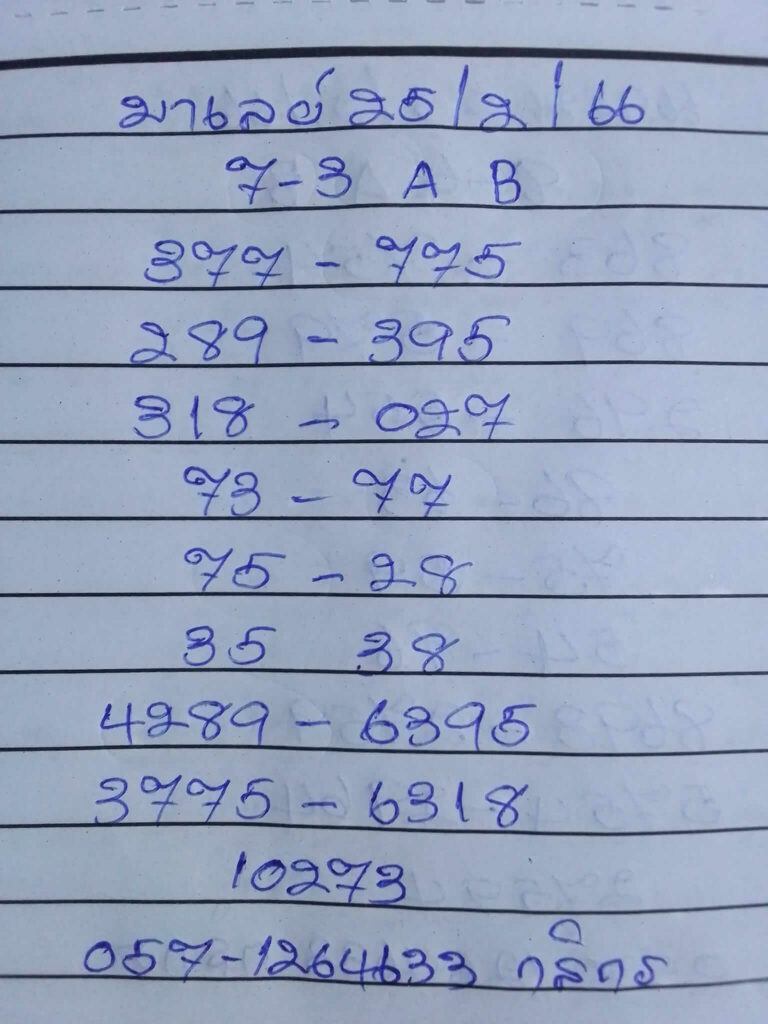 มาเลย์ 25/2/66
7-3 A B
377 - 775
289 - 395
318 - 027
73 - 77
75 - 28
35 38
4289 - 6395
3775 - 6318
10273
057-1264633 กสิกร